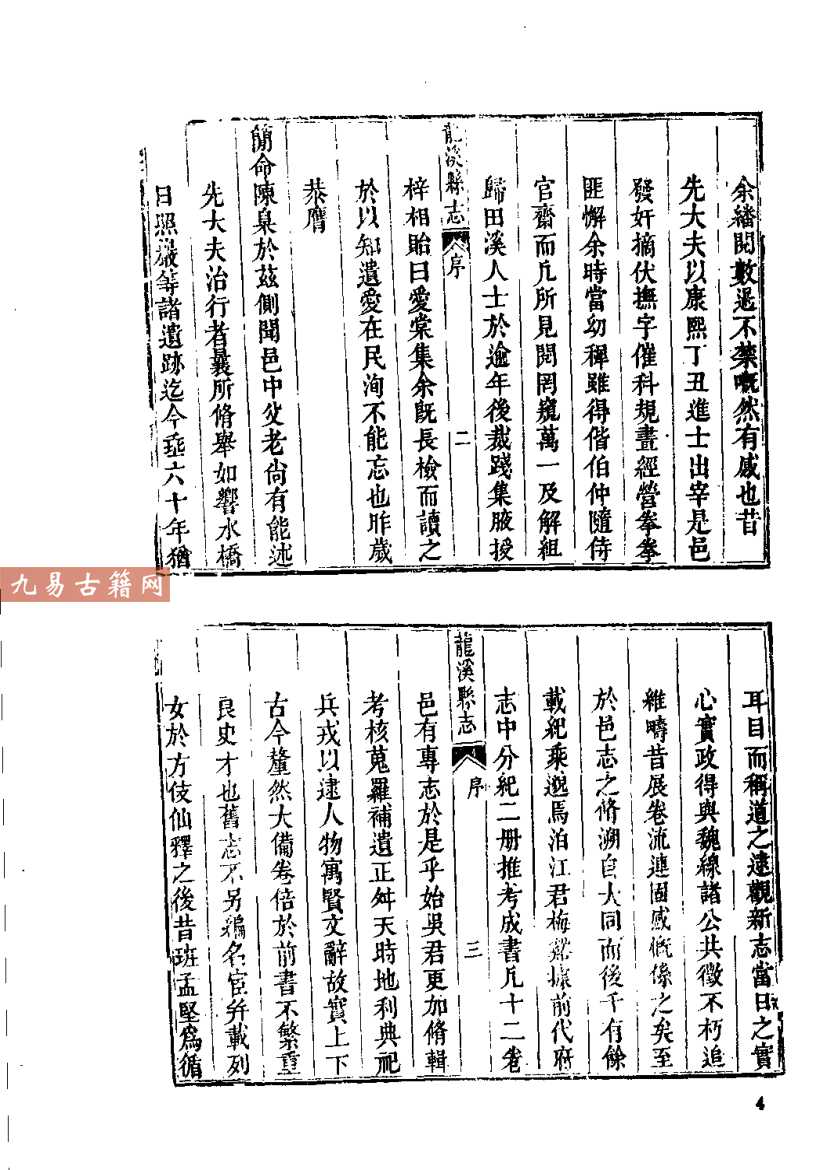 余繙閱數過不禁嘅然有感也昔
先大夫以康熙丁丑進士出宰是邑
發奸摘伏撫字催科規畫經營拳拳
匪懈余時當幼穉雖得偕伯仲隨侍
官齋而凡所見聞罔窺萬一及解組
歸田溪人士於逾年後裁踐集腋授
龍溪縣志
序
二
梓相貽曰愛棠集余旣長檢而讀之
於以知遺愛在民洵不能忘也昨歲
恭膺
簡命陳臬於茲側聞邑中父老尚有能述
先大夫治行者曩所脩舉如響水橋
日照巖等諸遺跡迄今垂六十年猶
九易古籍网
耳目而稱道之逮觀新志當日之實
心實政得與魏線諸公共徵不朽追
維疇昔展卷流連固感慨係之矣至
於邑志之脩溯自大同而後千有餘
載紀乘邈焉泊江君梅據前代府
志中分紀二册推考成書凡十二卷
龍溪縣志
序
三
邑有專志於是乎始吳君更加脩輯
考核蒐羅補遺正舛天時地利典祀
兵戎以逮人物寓賢文辭故實上下
古今釐然大備卷倍於前書不繁重
良史才也舊志不另編名宦弁載列
女於方伎仙釋之後昔班孟堅爲循
4